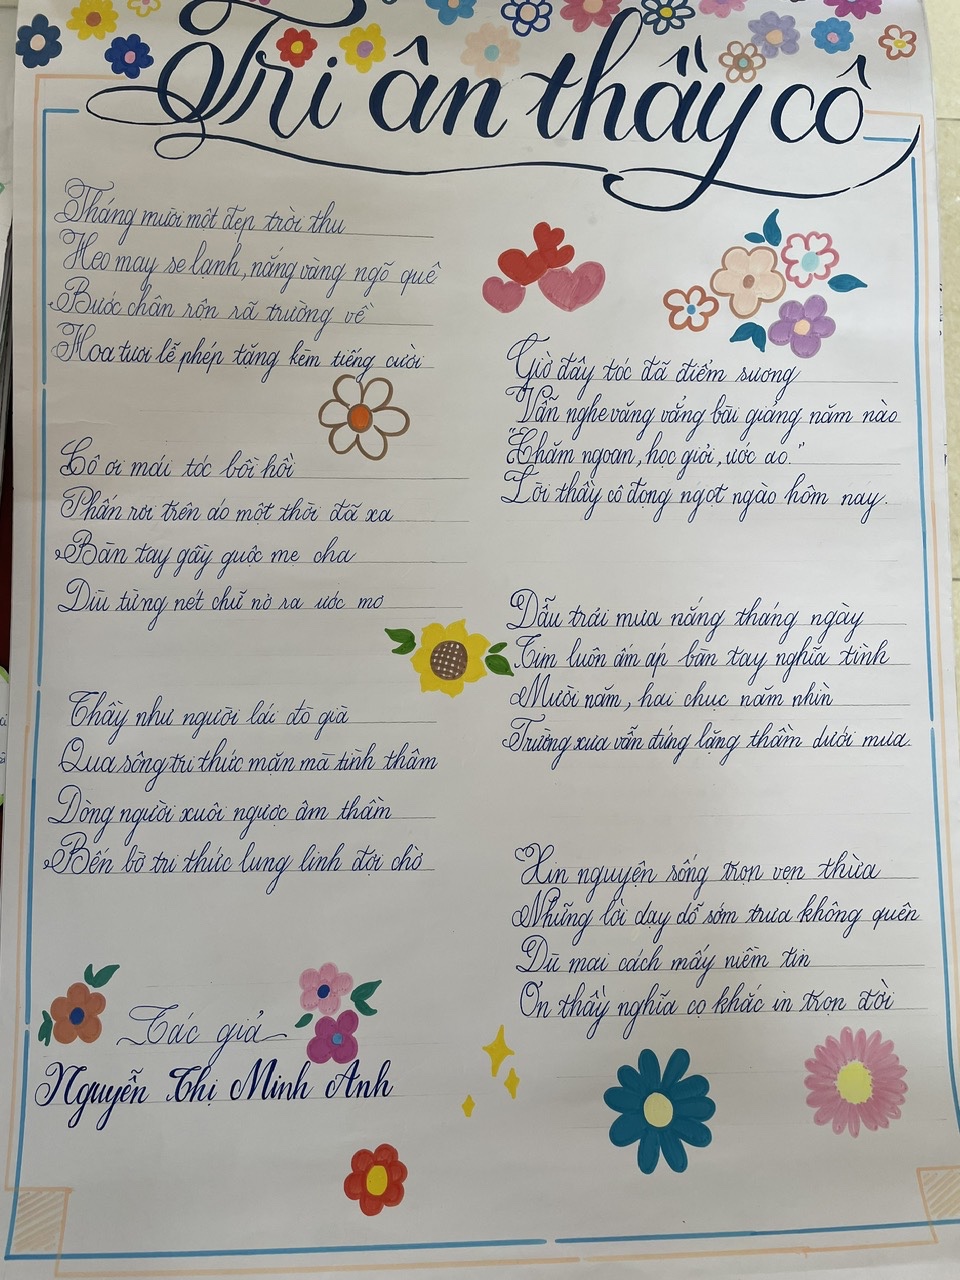 Tri ân thầy cô
Tháng mười một đẹp trời thu
Heo may se lạnh, nắng vàng ngõ quê
Bước chân rôn rã trường về
Hoa tươi lễ phép tặng kèm tiếng cười
Cô ơi mái tóc bồi hồi
Phấn rơi trên áo một thời đã xa
Bàn tay gầy guộc mẹ cha
Dìu từng nét chữ nở ra ước mơ
Thầy như người lái đò già
Qua sông tri thức mặn mà tình thâm
Dòng người xuôi ngược âm thầm
Bến bờ tri thức lung linh đợi chờ
Tác giả
Nguyễn Thị Minh Anh
Giờ đây tóc đã điểm sương
Vẫn nghe văng vẳng bài giảng năm nào
"Chăm ngoan, học giỏi, ước ao."
Lời thầy cô đọng ngọt ngào hôm nay.
Dẫu trải mưa nắng tháng ngày
Tim luôn ấm áp bàn tay nghĩa tình
Mười năm, hai chục năm nhìn
Trường xưa vẫn đứng lặng thầm dưới mưa.
Xin nguyện sống trọn vẹn thừa
Những lời dạy dỗ sớm trưa không quên
Dù mai cách mấy niềm tin
Ơn thầy nghĩa cọ khắc in trọn đời